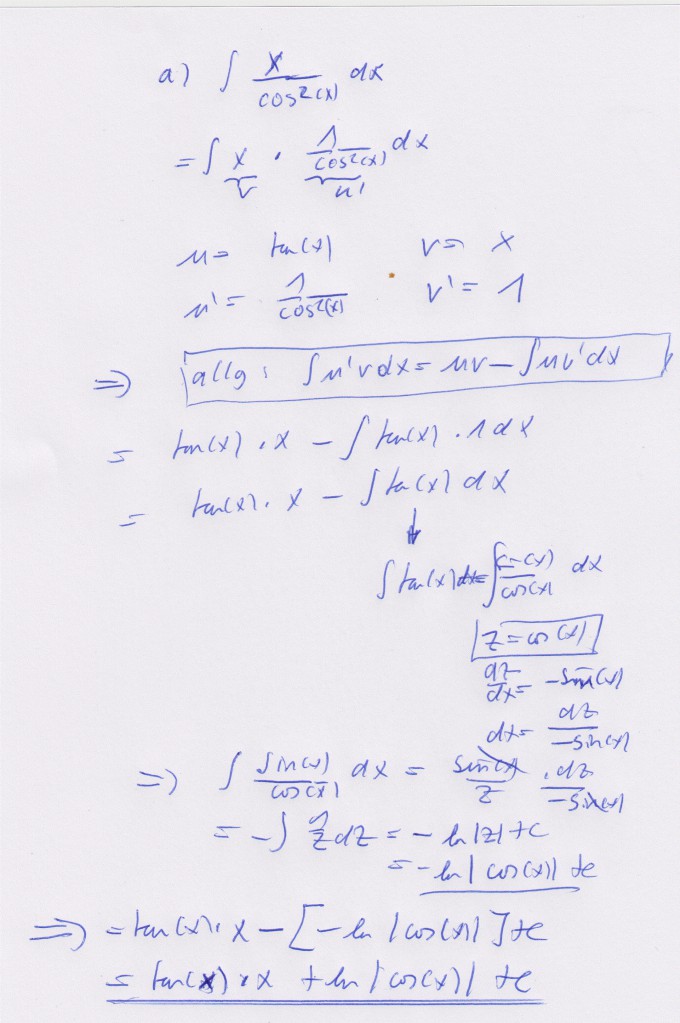 a) ∫ x/cos²(x) dx
= ∫ x · 1/cos²(x) dx
v u'
u= tan(x) v= x
u'= 1/cos²(x) v'= 1
⇒ allg: ∫u'vdx= uv-∫uv'dx
= tan(x) · x - ∫ tan(x) · 1 dx
= tan(x) · x - ∫ tan(x) dx
↓
∫ tan(x) dx = ∫ sin(x)/cos(x) dx
z = cos(x)
dz/dx = -sin(x)
dx = dz/-sin(x)
⇒ ∫ sin(x)/cos(x) dx = sin(x)/z · dz/-sin(x)
= -∫ 1/z dz = -ln|z| +c
= -ln|cos(x)| +c
⇒ = tan(x) · x - [-ln |cos(x)|] +c
= tan(x) · x + ln |cos(x)| +c